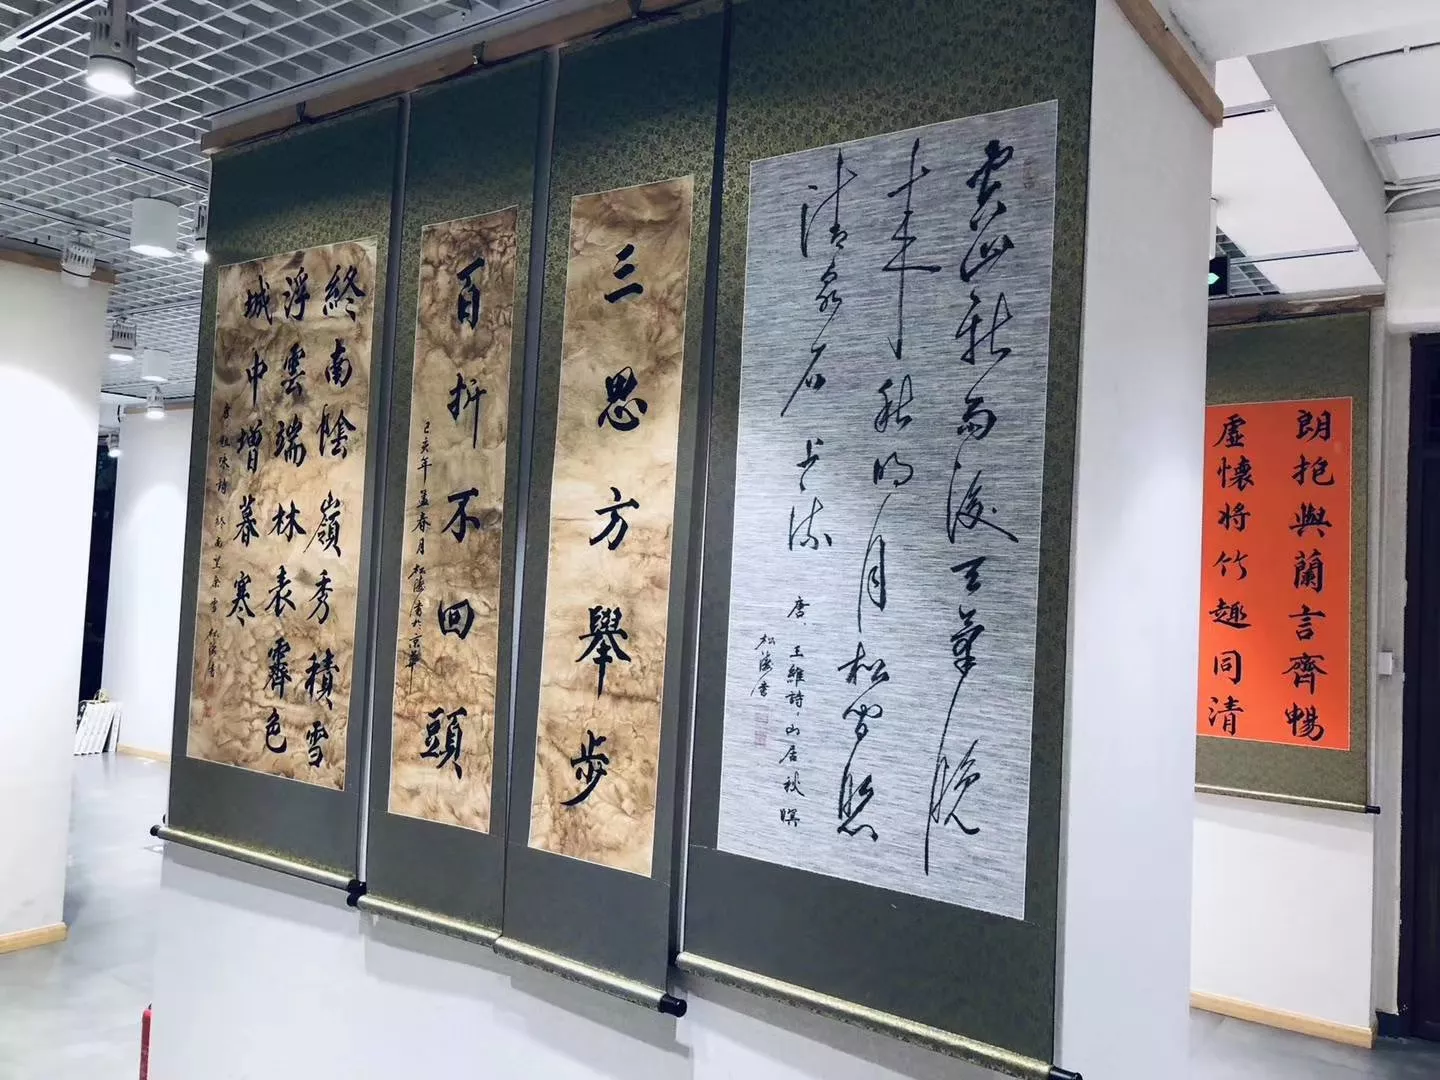 朗抱與蘭言齊暢
虛懷將竹趣同清
空山新雨後天氣晚
来秋明月松間照
清泉石上流
唐王維詩山居秋暝
松濤書
三思方舉步
百折不回頭
己亥年孟春月
松濤書於京華
終南陰嶺秀積雪
浮雲端林表霽色
城中增暮寒
唐祖咏詩終南望余雪松濤書